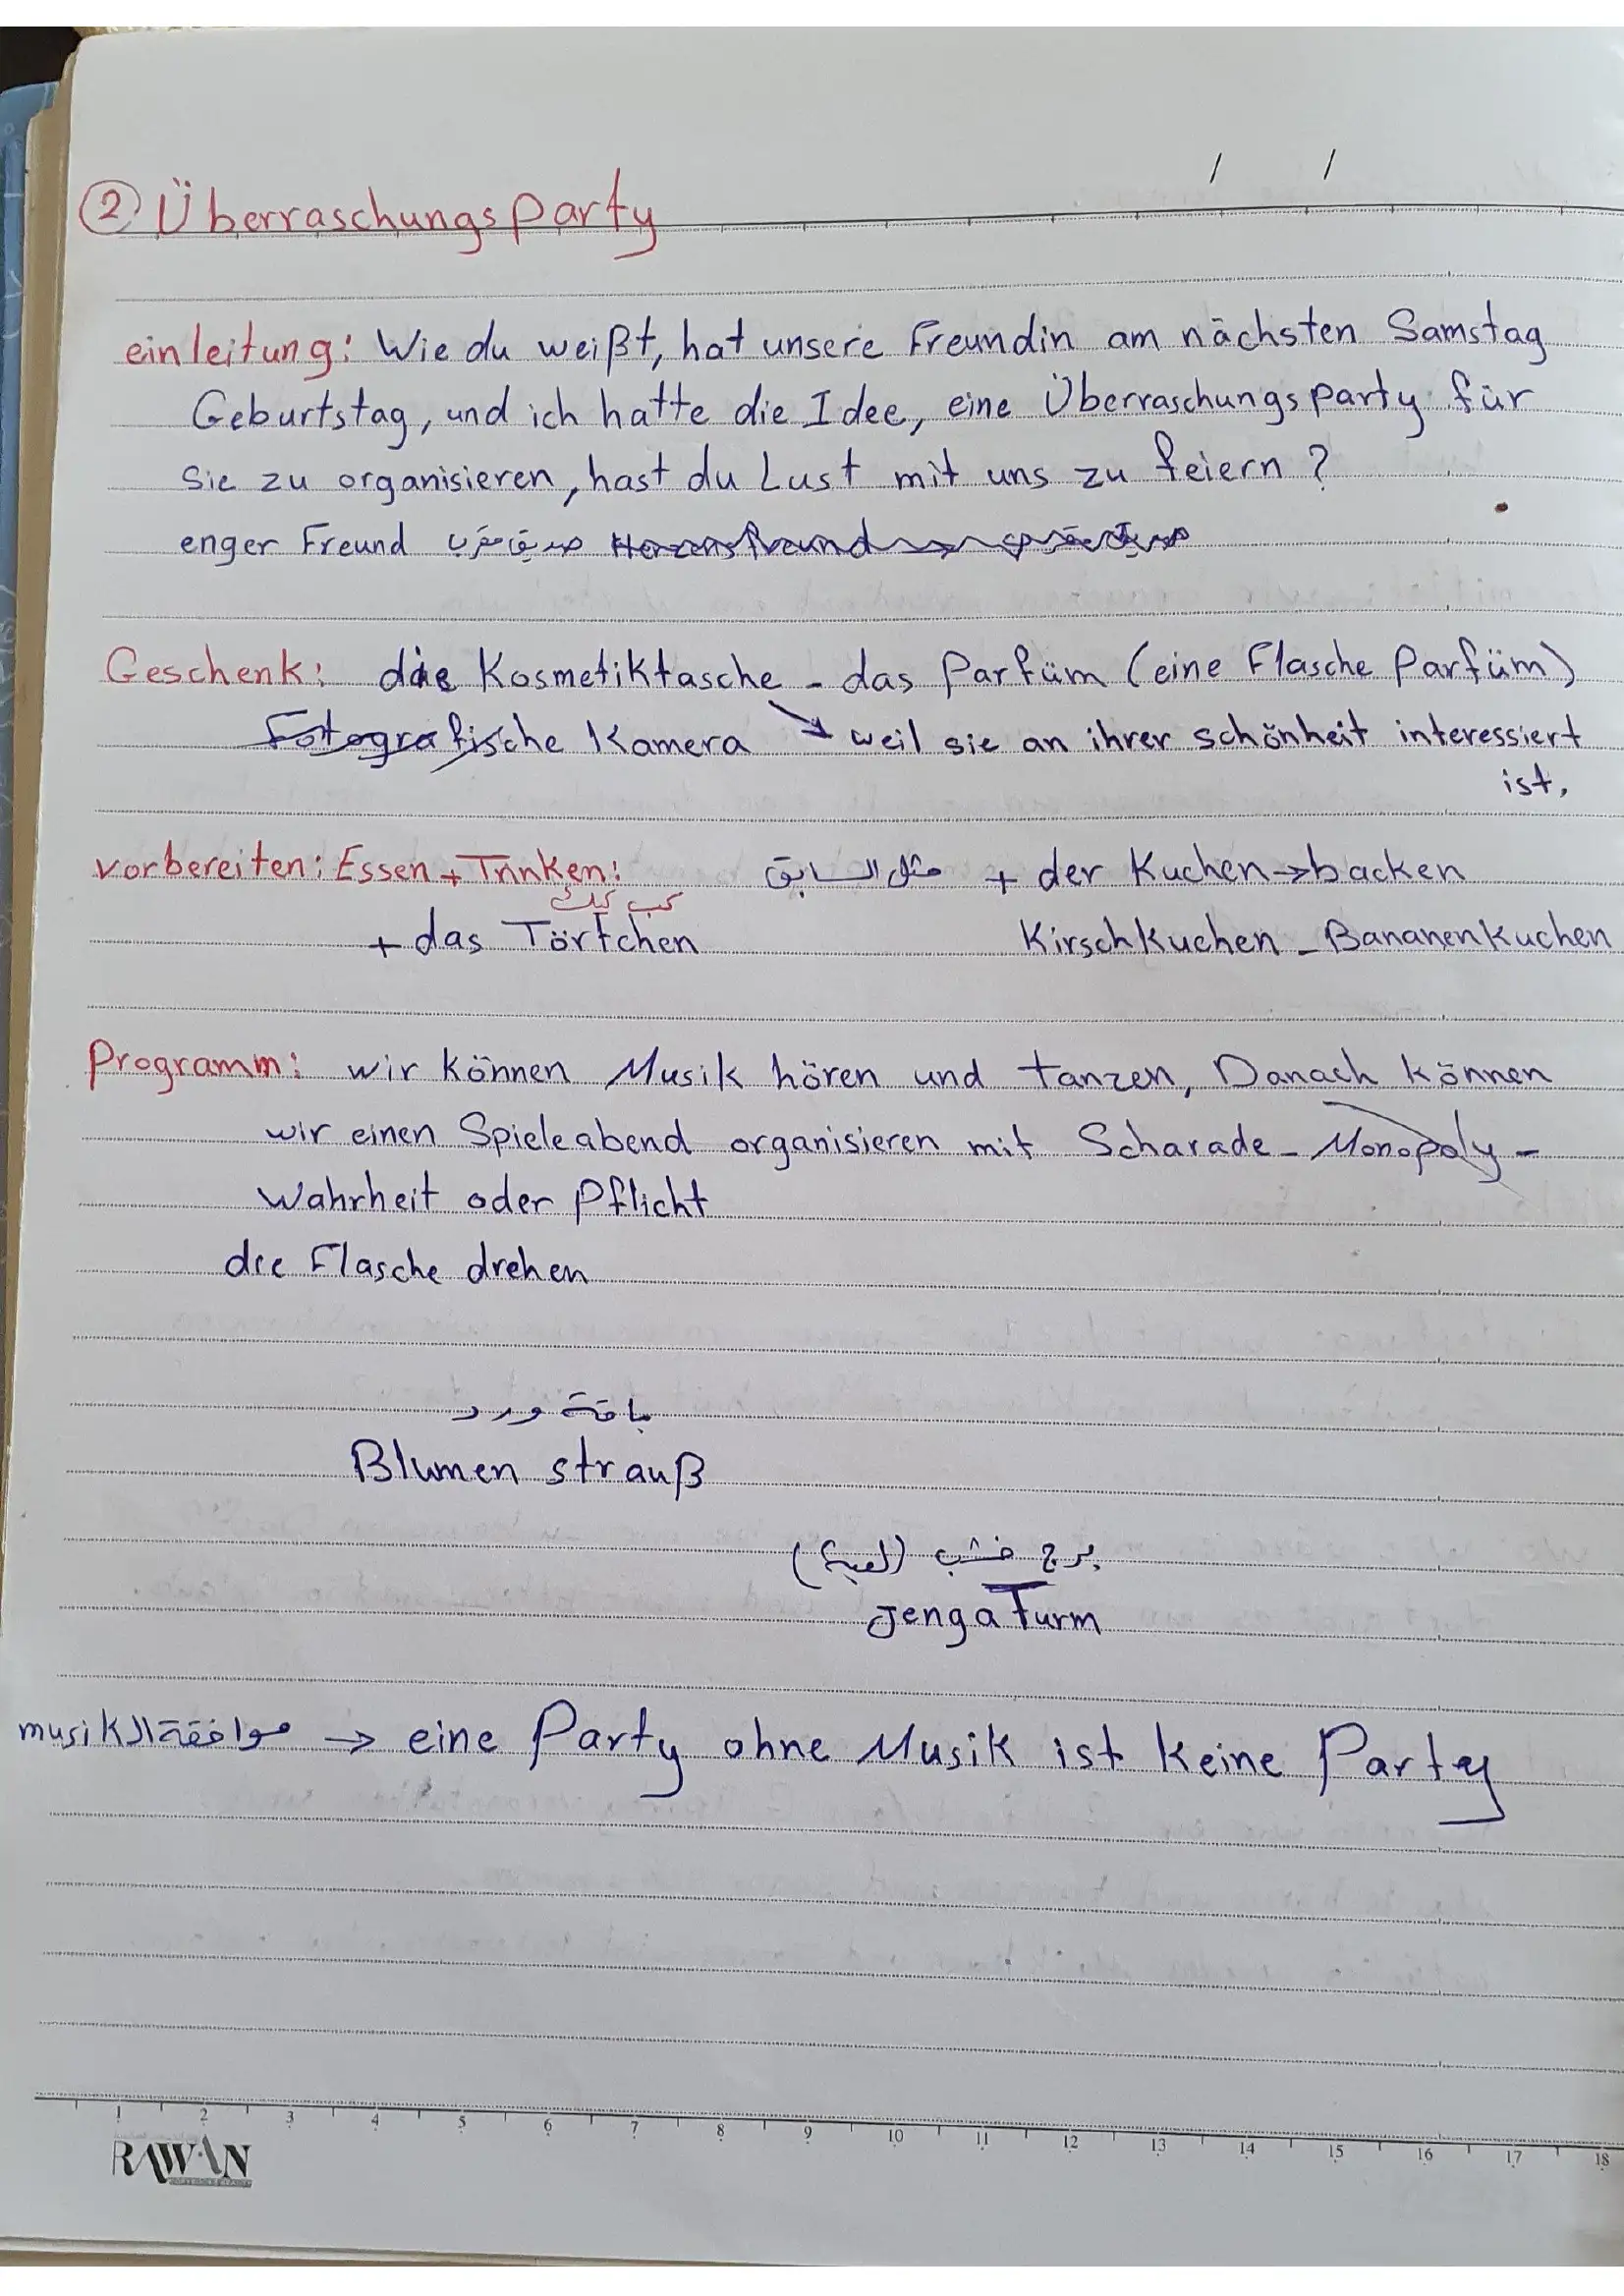 ② Überraschungsparty
einleitung: Wie du weißt, hat unsere Freundin am nächsten Samstag
Geburtstag, und ich hatte die Idee, eine Überraschungsparty für
Sie zu organisieren, hast du Lust mit uns zu feiern?
enger Freund صديق مقرب Herzensfreund
Geschenk: die Kosmetiktasche - das Parfüm (eine Flasche Parfüm)
Fotografische Kamera ↘ weil sie an ihrer schönheit interessiert
ist.
vorbereiten: Essen + Trinken: مثل السابق + der Kuchen → backen
كب كيك
+ das Törtchen Kirschkuchen - Bananenkuchen
Programm: wir können Musik hören und tanzen, Danach können
wir einen Spieleabend organisieren mit Scharade - Monopoly -
Wahrheit oder Pflicht
die Flasche drehen
باقة ورد
Blumen strauß
برج خشب (لعبة)
Jenga Turm
موافقة الـ musik → eine Party ohne Musik ist keine Party
1 2 3 4 5 6 7 8 9 10 11 12 13 14 15 16 17 18
RAWAN